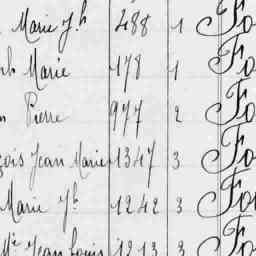 Marie Jh 488 1 Fo
ph Marie 178 1 Fo
Pierre 977 2 Fo
çois Jean Marie 1347 3 Fo
Marie Jh 1242 3 Fo
Mie Jean Louis 1213 3 Fo